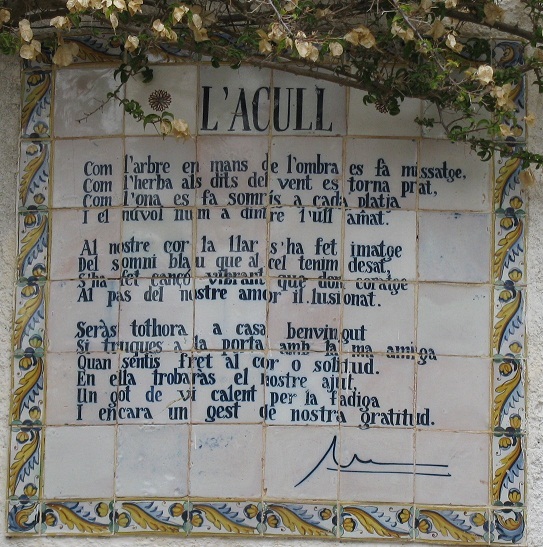 L'ACULL
Com l'arbre en mans de l'ombra es fa missatge,
Com l'herba als dits del vent es torna prat,
Com l'ona es fa somris a cada platja
I el núvol num a dintre l'ull amat.
Al nostre cor la llar s'ha fet imatge
Del somni blau que al cel tenim desat,
S'ha fet cançó vibrant que don coratge
Al pas del nostre amor il.lusionat.
Seràs tothora a casa benvingut
Si truques a la porta amb la ma amiga
Quan sentis fret al cor o solitud.
En ella trobaràs el nostre ajut,
Un got de vi calent per la fadiga
I encara un gest de nostra gratitud.